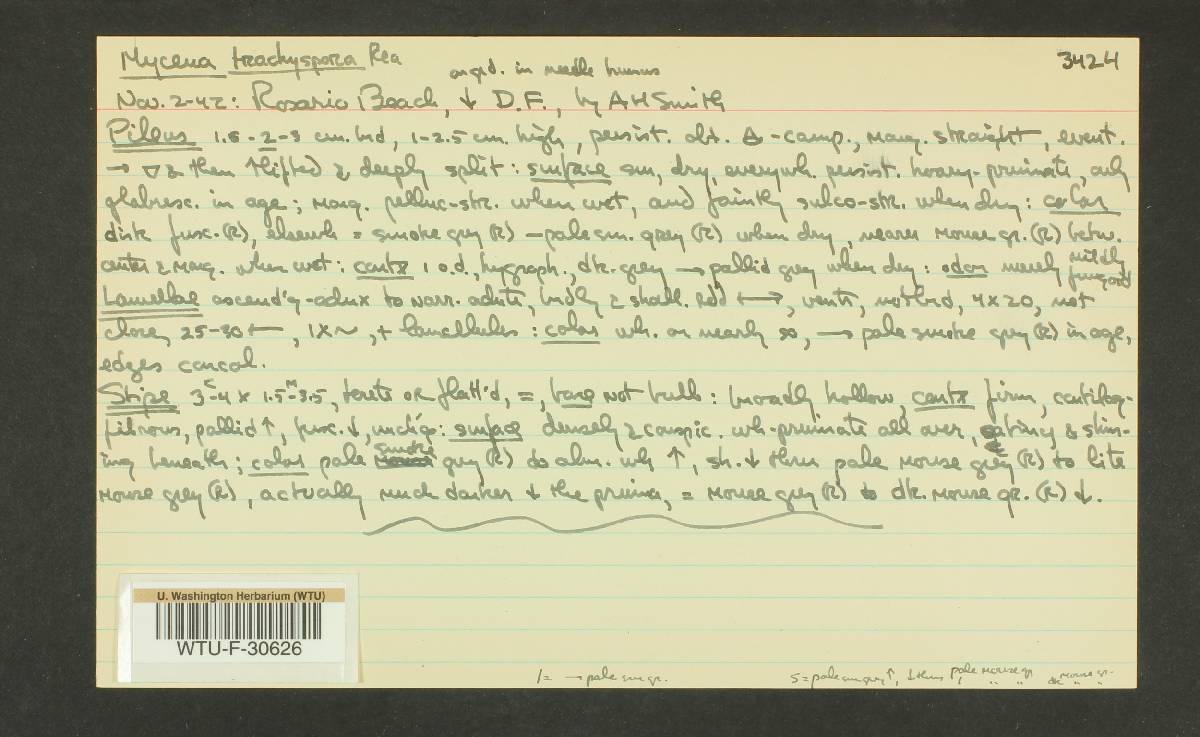 Mycena trachyspora Rea
3424
on grd. in needle humus
Nov. 2-42: Rosario Beach, ↓ D.F., by AHSmith
Pileus 1.5-2-3 cm. brd, 1-2.5 cm. high, persist. obt. ∆-camp., marg. straight, event.
→ ▽ & then ↑lifted & deeply split: surface sm, dry, everywh. persist. hoary-pruinate, only
glabresc. in age; marg. pelluc-str. when wet, and faintly sulco-str. when dry: color
disk fusc.(R), elsewh = smoke grey (R) – pale sm. grey (R) when dry, nearer mouse gr. (R) betw.
center & marg. when wet: contx 1 o.d., hygroph., dk. grey → pallid grey when dry: odor merely mildly fungoid
Lamellae ascend'g-adnx to narr. adnte, brdly & shall. rdd ←→, ventr, mod brd, 4x20, not
close, 25-30 ←, 1x~, + lamellules: color wh. or nearly so, → pale smoke grey (R) in age,
edges concol.
Stipe 3-4 C x 1.5-3.5 M, terete or flatt'd, =, base not bulb: broadly hollow, contx firm, cartilag-
fibrous, pallid ↑, fusc. ↓, unchg: surface densely & conspic. wh-pruinate all over, satiny & shin-
ing beneath; color pale smoke grey (R) to alm. wh ↑, sh. ↓ thru pale mouse grey (R) to lite
mouse grey (R), actually much darker ↓ the pruina, = mouse grey (R) to dk. mouse gr. (R) ↓.
U. Washington Herbarium (WTU)
WTU-F-30626
1= → pale sm gr.
S = pale sm grey ↑, ↓ thru pale mouse gr
dk mouse gr.